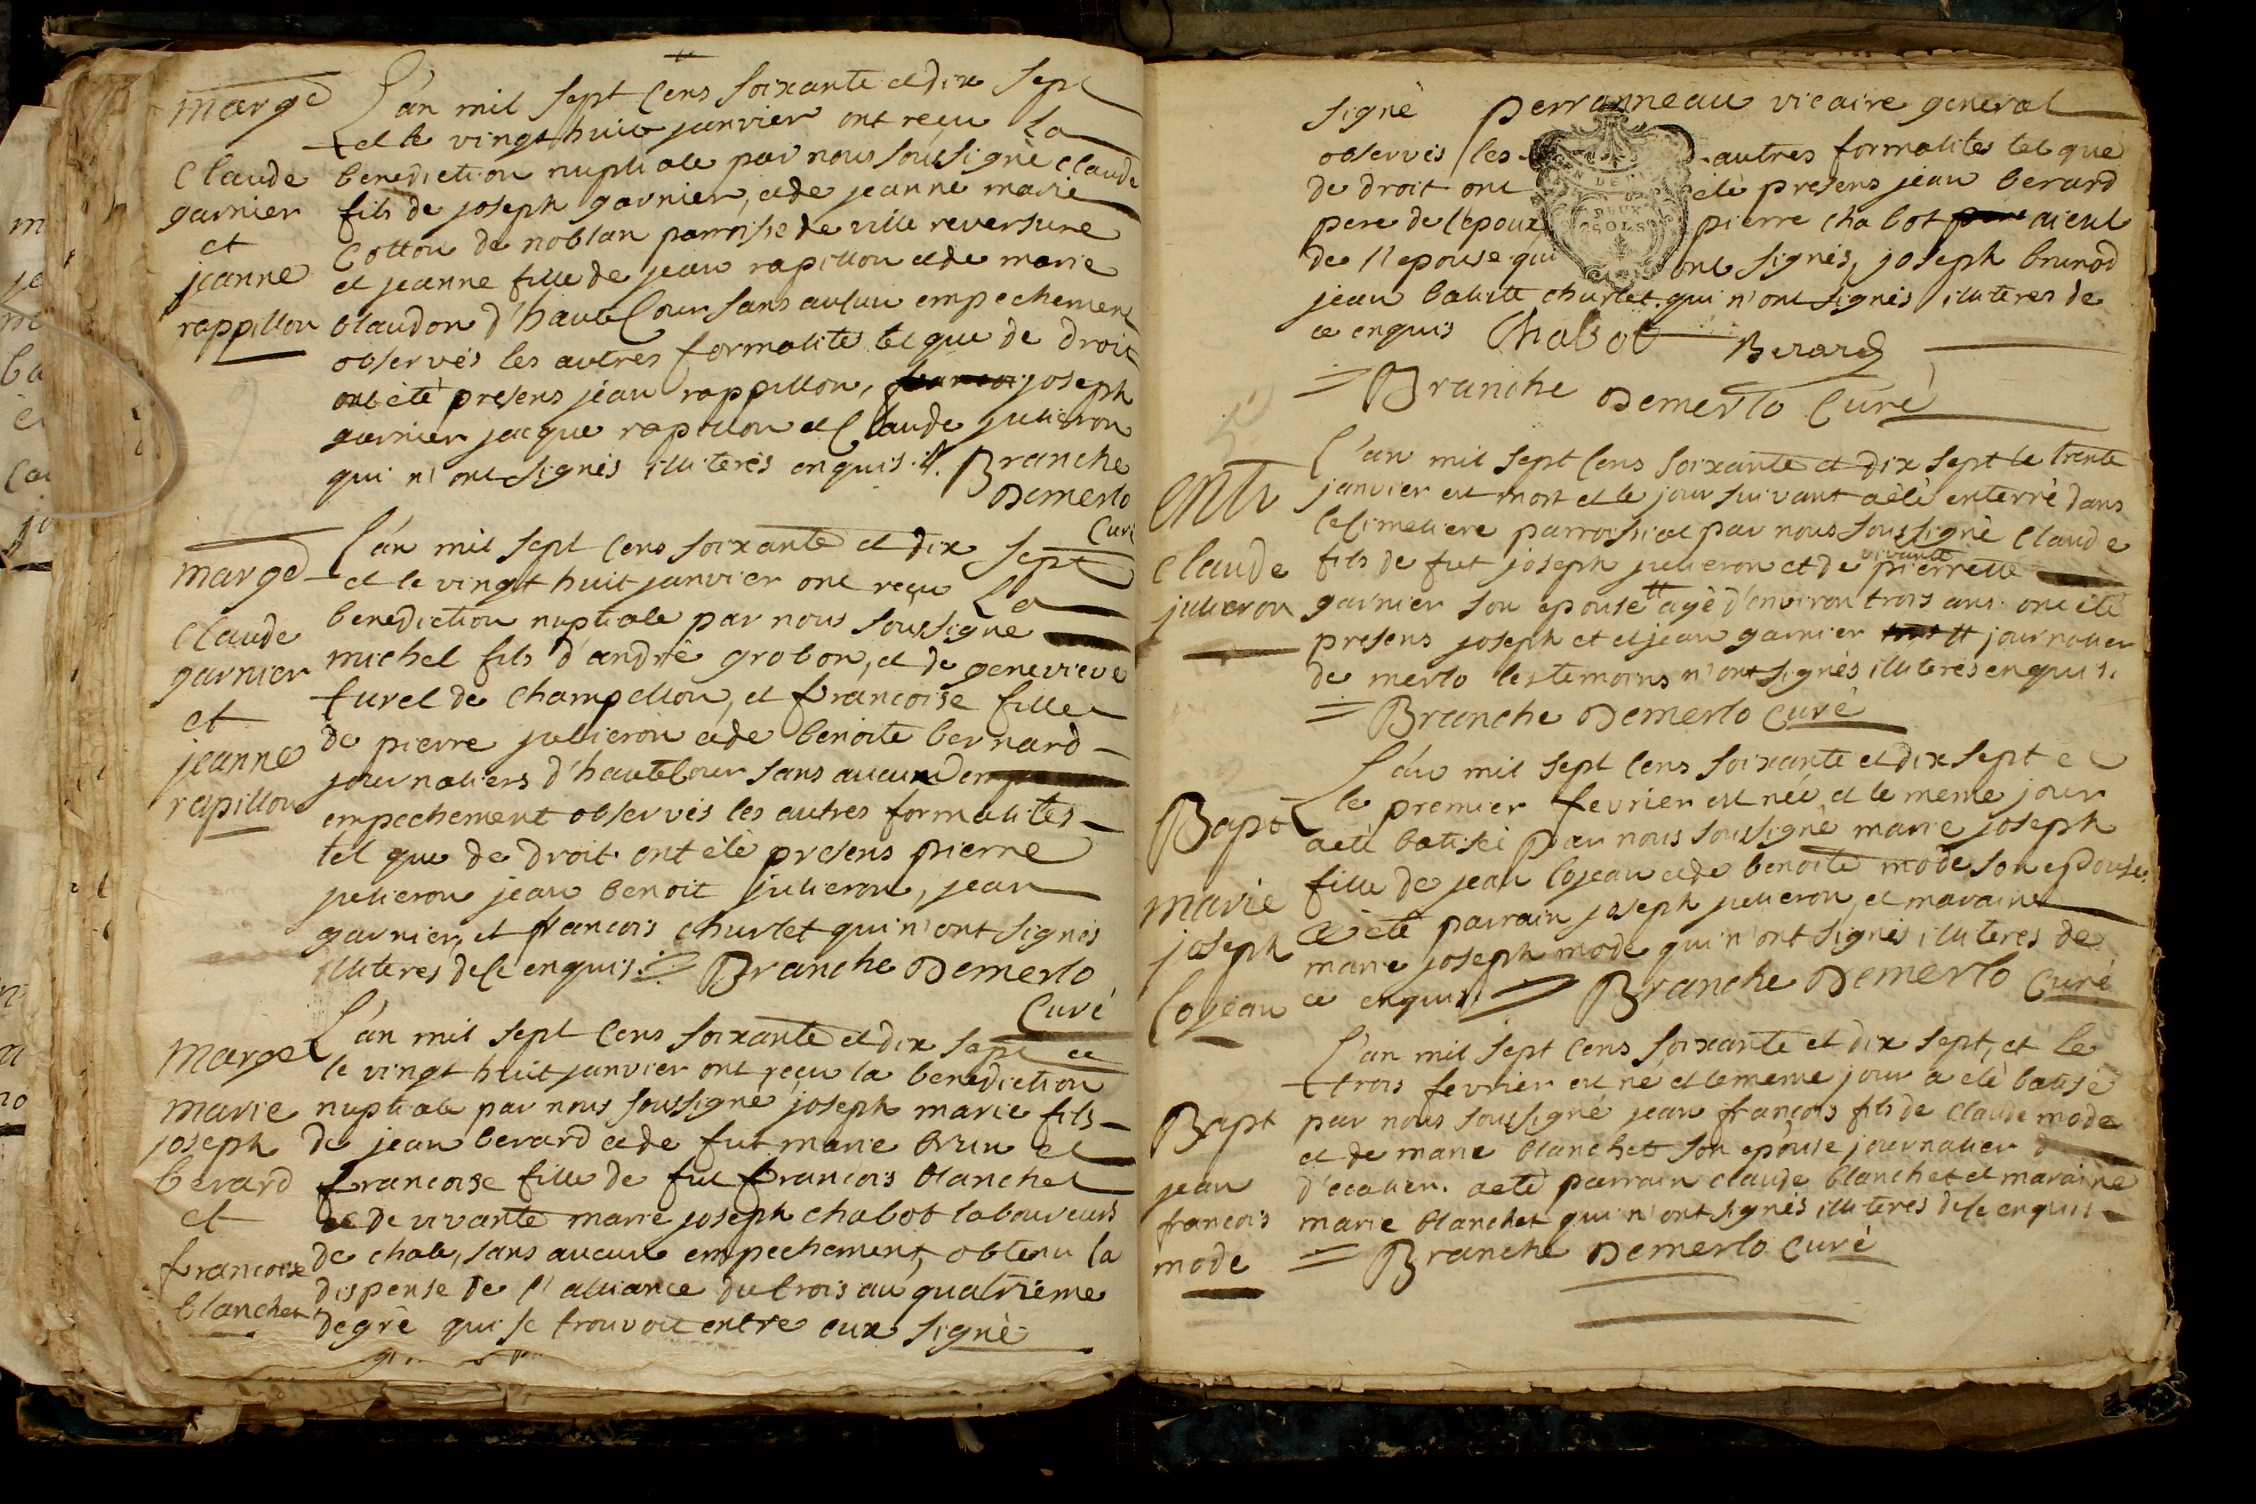 marge
Claude
garnier
et
jeanne
rappillon
L'an mil sept Cens soixante et dix sept
et le vingt huit janvier ont reçu La
benediction nuptiale par nous soussignè Claude
fils de joseph garnier, et de jeanne marie
Cottou de noblan parroisse de ville reversure
et jeanne fille de jean rapillon et de marie
blaudon d'hautecour sans aucun empechement
observés les autres formalites tel que de droit
ont étè presens jean rappillon, joseph
garnier jacque rapillon et Claude julieron
qui n'ont signés illiterès enquis. Branche
Demerlo
Curé
marge
Claude
garnier
et
jeanne
rapillon
L'an mil sept Cens soixante et dix sept
et le vingt huit janvier ont reçu La
benediction nuptiale par nous soussigné
michel fils d'andrè grobon, et de genevieve
turel de Champellion, et francoise fille
de pierre julieron et de benoite bernard
journaliers d'hautecour sans aucun
empechement observés les autres formalites
tel que de droit ont étè presens pierre
julieron jean benoit julieron, jean
garnier, et francois churlet qui n'ont signés
illiteres de ce enquis. Branche Demerlo
Curé
marge
marie
joseph
berard
et
francoise
blanchet
L'an mil sept Cens soixante et dix sept et
le vingt huit janvier ont reçu la benediction
nuptiale par nous soussigné joseph marie fils
de jean berard et de fut marie brun et
francoise fille de fut francois blanchet
de vivante marie joseph chabot laboureurs
de chale, sans aucun empechement, obtenu la
dispense de l'alliance du trois au quatrième
degrè qui se trouvoit entre eux signè
signè perranneau vicaire general
observés les autres formalites tel que
de droit ont étè presens jean berard
pere de l'epoux pierre chabot aieul
de l'epouse qui ont signés, joseph brunod
jean batiste churlet qui n'ont signés illiteres de
ce enquis Chabot Berard
Branche Demerlo Curé
DEUX
SOLS
entr
Claude
julieron
L'an mil sept Cens soixante et dix sept le trente
janvier est mort et le jour suivant a étè enterrè dans
le cimetiere parroissial par nous soussignè Claude
fils de fut joseph julieron et de vivante pierrette
garnier son epouse agè d'environ trois ans ont étè
presens joseph et jean garnier journalier
de merlo les temoins n'ont signés illiterés enquis.
Branche Demerlo Curé
Bapt
marie
joseph
Cojean
L'an mil sept Cens soixante et dix sept et
le premier fevrier est née et le meme jour
a étè batisée par nous soussigné marie joseph
fille de jean Cojean et de benoite mode son epouse.
a étè parrain joseph julieron, et maraine
marie joseph mode qui n'ont signés illiteres de
ce enquis. Branche Demerlo Curé
Bapt
jean
francois
mode
L'an mil sept Cens soixante et dix sept, et le
trois fevrier est né et le meme jour a étè batisé
par nous soussigné jean francois fils de Claude mode
et de marie blanchet son epouse journalier
d'ecalier. a etè parrain claude blanchet et maraine
marie blanchet qui n'ont signés illiteres de ce enquis
Branche Demerlo Curé